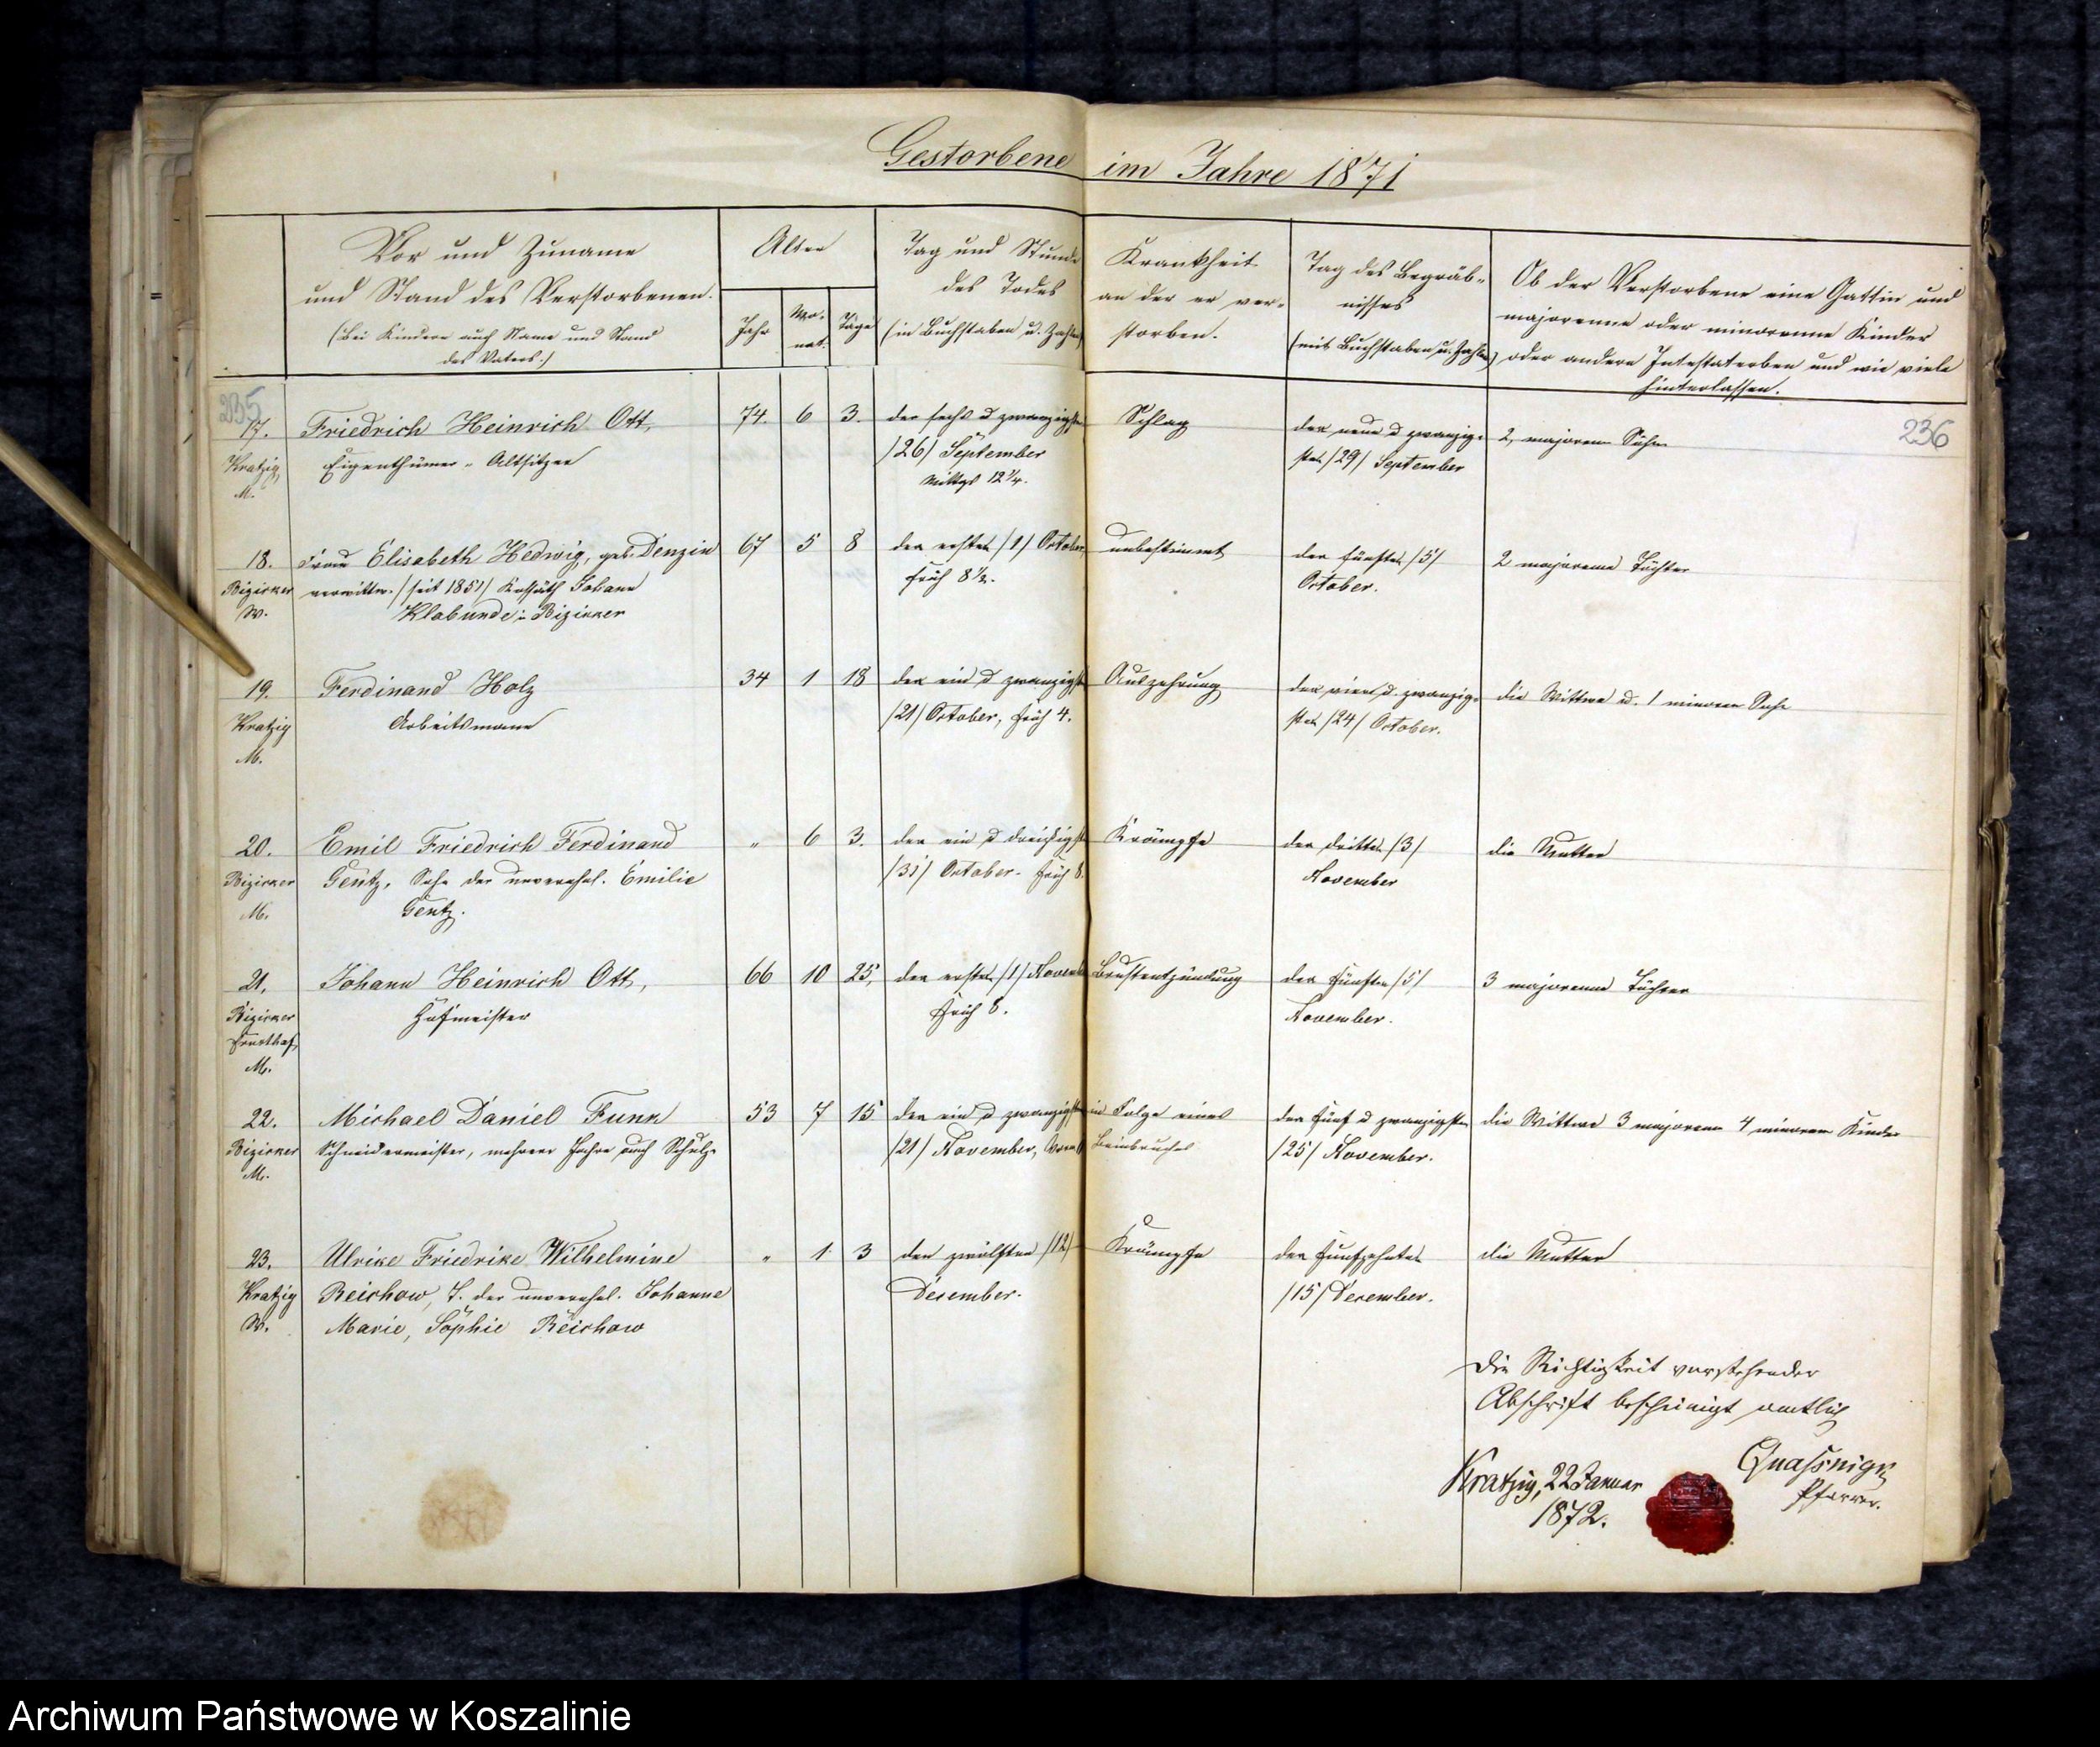 Gestorbene im Jahre 1871
Vor und Zuname
und Stand des Verstorbenen.
(bei Kindern auch Name und Stand
des Vaters.)
Alter
Jahr
Mo-
nat.
Tage
Tag und Stunde
des Todes
(in Buchstaben u. Zahlen)
Krankheit
an der er ver-
storben.
Tag des Begräb-
nisses
(mit Buchstaben u. Zahlen)
Ob der Verstorbene eine Gattin und
majorenne oder minorenne Kinder
oder andere Intestaterben und wie viele
hinterlassen.
235
236
17.
Kratzig
M.
Friedrich Heinrich Ott,
Eigenthümer u. Altsitzer
74. 6 3.
der sechs u zwanzigste
/26/ September
Mittgs 12 1/4.
Schlag
den neun u zwanzig-
sten /29/ September
2 majorenn Söhne
18.
Bizicker
W.
Frau Elisabeth Hedwig, geb. Denzin
verwittw. /seit 1851/ Kossäth Johann
Klabunde in Bizicker
67 5 8
den ersten /1/ October
früh 8 1/2.
unbestimmt
den fünften /5/
October.
2 majorenne Töchter
19.
Kratzig
M.
Ferdinand Holz
Arbeitsmann
34 1 18
den ein u zwanzigst
/21/ October, früh 4.
Auszehrung
den vier u. zwanzig-
sten /24/ October.
die Wittwe u. 1 minorenn Sohn
20.
Bizicker
M.
Emil Friedrich Ferdinand
Gentz, Sohn der unverehel. Emilie
Gentz.
" 6 3.
den ein u dreißigst
/31/ October. früh 8.
Krämpfe
den dritten /3/
November
die Mutter
21.
Bizicker
Ernsthof
M.
Johann Heinrich Ott,
Hofmeister
66 10 25,
den ersten /1/ Novemb
früh 8.
Brustentzündung
den fünften /5/
November.
3 majorenne Töchter
22.
Bizicker
M.
Michael Daniel Funk
Schneidermeister, mehrere Jahre auch Schulze
53 7 15
den ein u zwanzigsten
/21/ November,
in Folge eines
Beinbruches
den fünf u zwanzigsten
/25/ November.
die Wittwe 3 majorenn 4 minorenn Kinder
23.
Kratzig
W.
Ulrike Friedrike Wilhelmine
Reichow, T. der unverehel. Johanne
Marie, Sophie Reichow
" 1. 3
den zwölften /12/
December.
Krämpfe
den fünfzehnten
/15/ December.
die Mutter
Die Richtigkeit vorstehender
Abschrift bescheinigt amtlich
Kratzig, 22 Januar
1872.
Pfarrer.
Archiwum Państwowe w Koszalinie